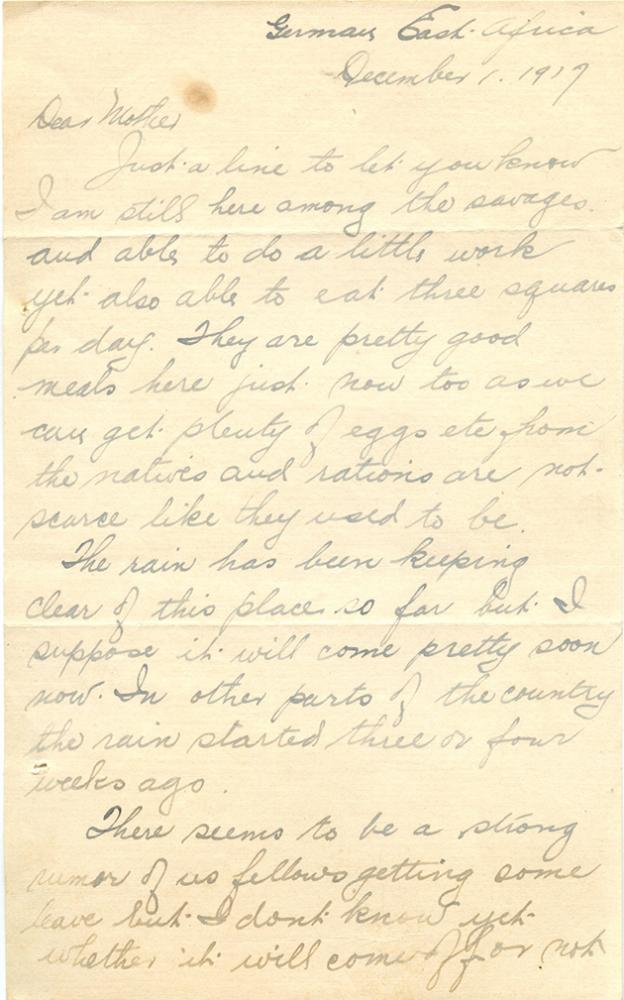 German East Africa
December 1. 1917
Dear Mother
Just a line to let you know
I am still here among the savages.
and able to do a little work
yet also able to eat three squares
per day. They are pretty good
meals here just now too as we
can get plenty of eggs etc from
the natives and rations are not
scarce like they used to be.
The rain has been keeping
clear of this place so far but I
suppose it will come pretty soon
now. In other parts of the country
the rain started three or four
weeks ago.
There seems to be a strong
rumor of us fellows getting some
leave but I dont know yet
whether it will come off or not